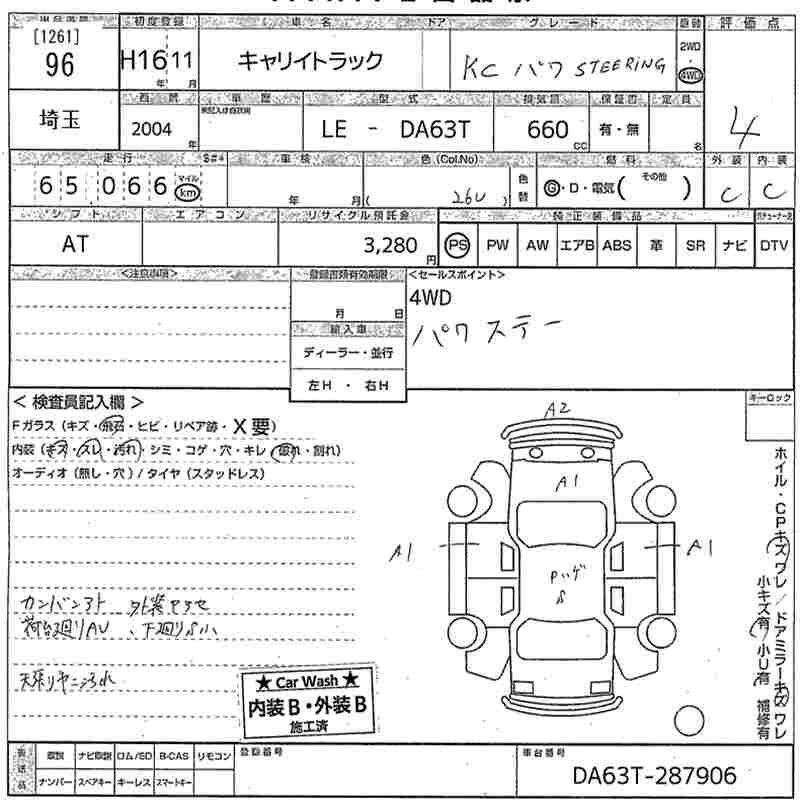 初度登録 車名 ドア グレード 評価点
[1261]
96
H16 11
年 月
キャリイトラック
KC パワ STEERING
2WD
・
4WD
4
埼玉
2004
年
車歴
型式
LE - DA63T
排気量
660
CC
保証書
有・無
定員
名
走行
65,066
マイル
km
車検
年 月
色(Col.No)
( 26U )
色替
燃料
G・D・電気( その他 )
外装 内装
C C
シフト
AT
エアコン
リサイクル預託金
3,280 円
純正装備品
PS PW AW エアB ABS 革 SR ナビ DTV
<注意事項>
登録書類有効期限
月 日
輸入車
ディーラー・並行
左H ・右H
<セールスポイント>
4WD
パワステー
キーロック
< 検査員記入欄 >
Fガラス (キズ・飛石・ヒビ・リペア跡・X要)
内装 (キズ・スレ・汚れ・シミ・コゲ・穴・キレ・破れ・割れ)
オーディオ (無し・穴) / タイヤ (スタッドレス)
A2
A1
A1
A1
Pハゲ
S
カンバンアト 外装アラセ
荷台廻りAU、下廻りS小
天張りヤニ汚れ
★ Car Wash ★
内装B・外装B
施工済
ホイル・CPキズワレ/ドアミラーキズワレ
小キズ有 小U有 補修有
取説 ナビ取説 ロム/SD B-CAS リモコン
ナンバー スペアキー キーレス スマートキー
登録番号
車台番号
DA63T-287906